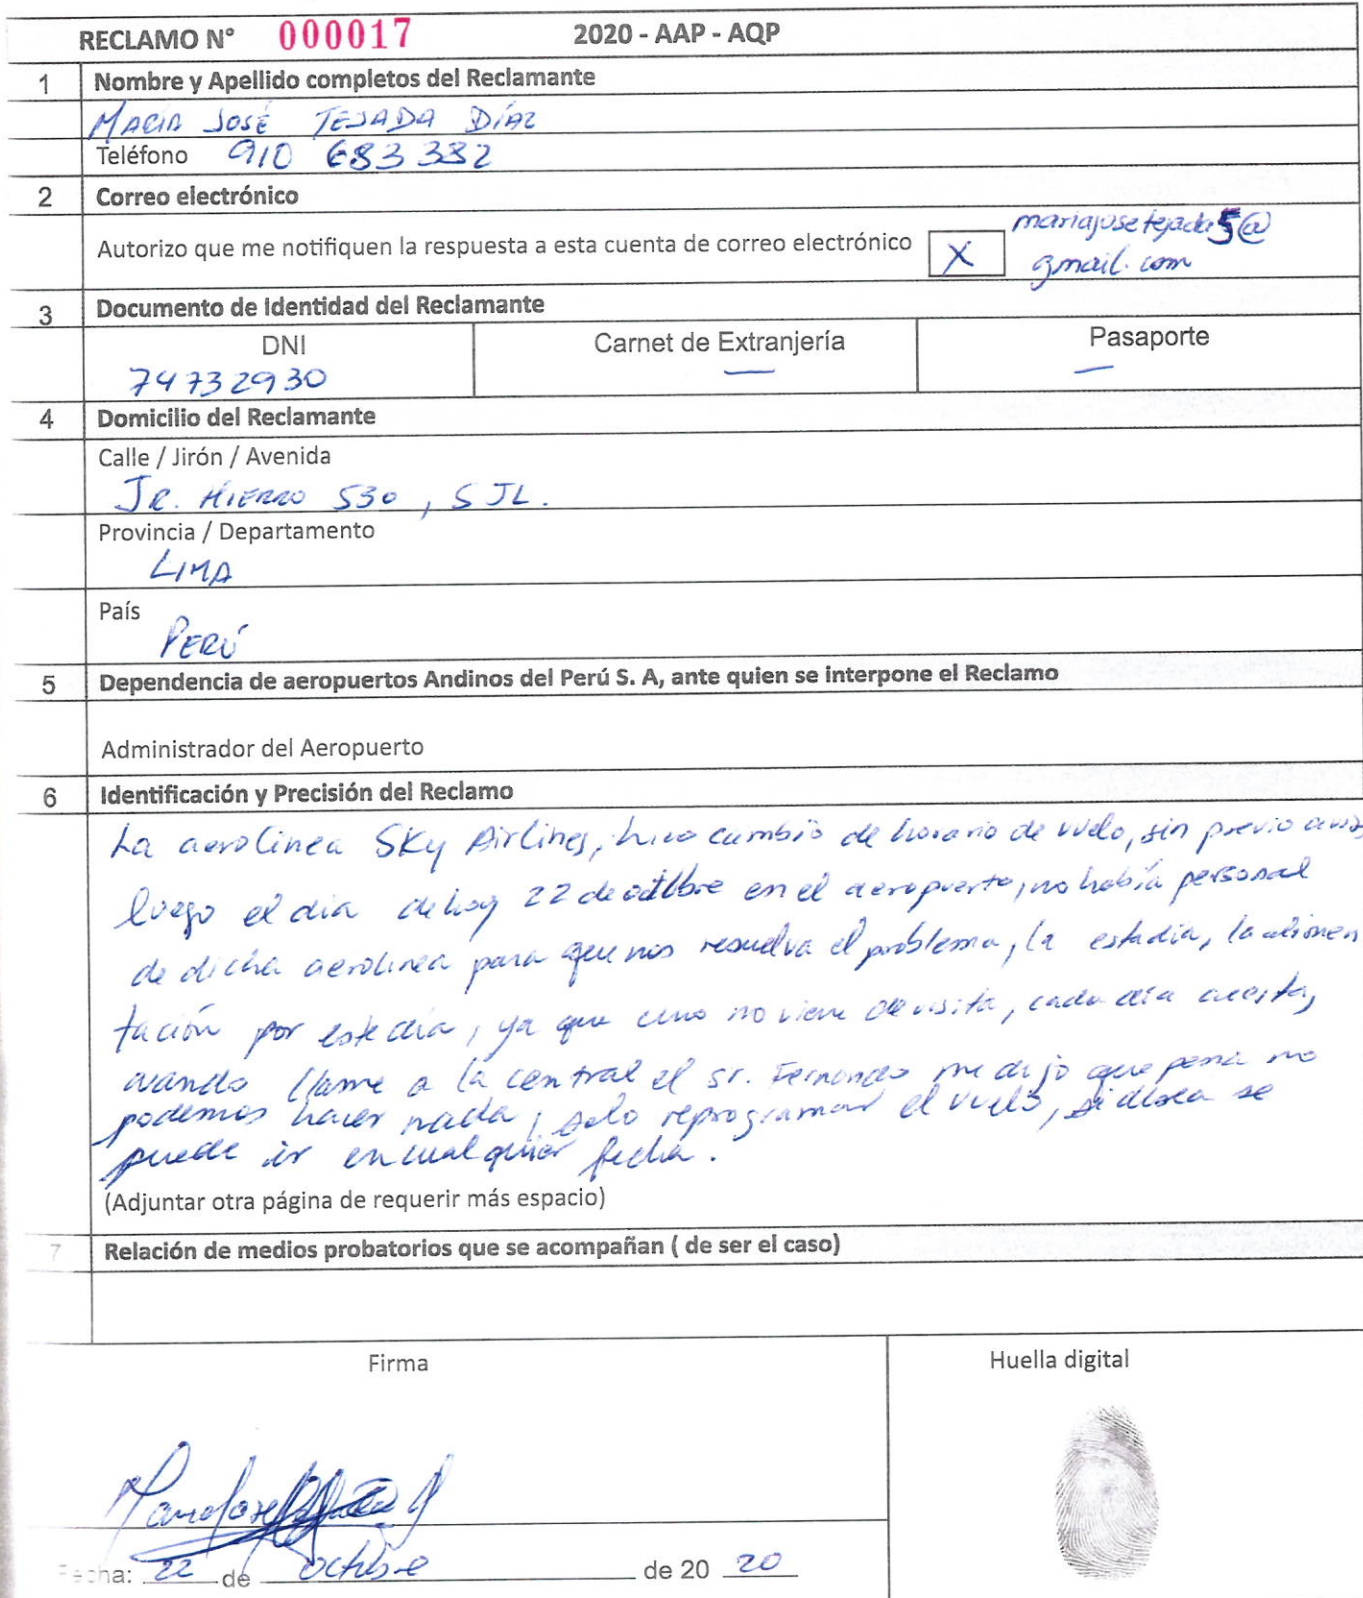 RECLAMO N° 000017 2020 - AAP - AQP
1 Nombre y Apellido completos del Reclamante
MARÍA JOSÉ TEJADA DÍAZ
Teléfono 910 683 382
2 Correo electrónico
mariajosetejada5@
Autorizo que me notifiquen la respuesta a esta cuenta de correo electrónico X gmail.com
3 Documento de Identidad del Reclamante
DNI Carnet de Extranjería Pasaporte
74732930 — —
4 Domicilio del Reclamante
Calle / Jirón / Avenida
JR. HIERRO 530, SJL.
Provincia / Departamento
LIMA
País
PERÚ
5 Dependencia de aeropuertos Andinos del Perú S. A, ante quien se interpone el Reclamo
Administrador del Aeropuerto
6 Identificación y Precisión del Reclamo
La aerolinea SKy Airlines, hizo cambio de horario de vuelo, sin previo aviso
luego el dia de hoy 22 de octubre en el aeropuerto, no había personal
de dicha aerolinea para que nos resuelva el problema, la estadia, la alimen
tación por este día, ya que uno no viene de visita, cada día cuesta,
cuando llame a la central el sr. Fernando me dijo que pena no
podemos hacer nada, solo reprogramar el vuelo, si desea se
puede ir en cualquier fecha.
(Adjuntar otra página de requerir más espacio)
7 Relación de medios probatorios que se acompañan ( de ser el caso)
Firma Huella digital
Fecha: 22 de octubre de 20 20